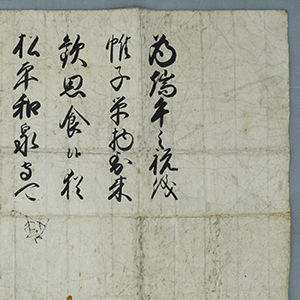 為端午之祝儀
帷子単物到来
歓思食候猶
松平和泉守可